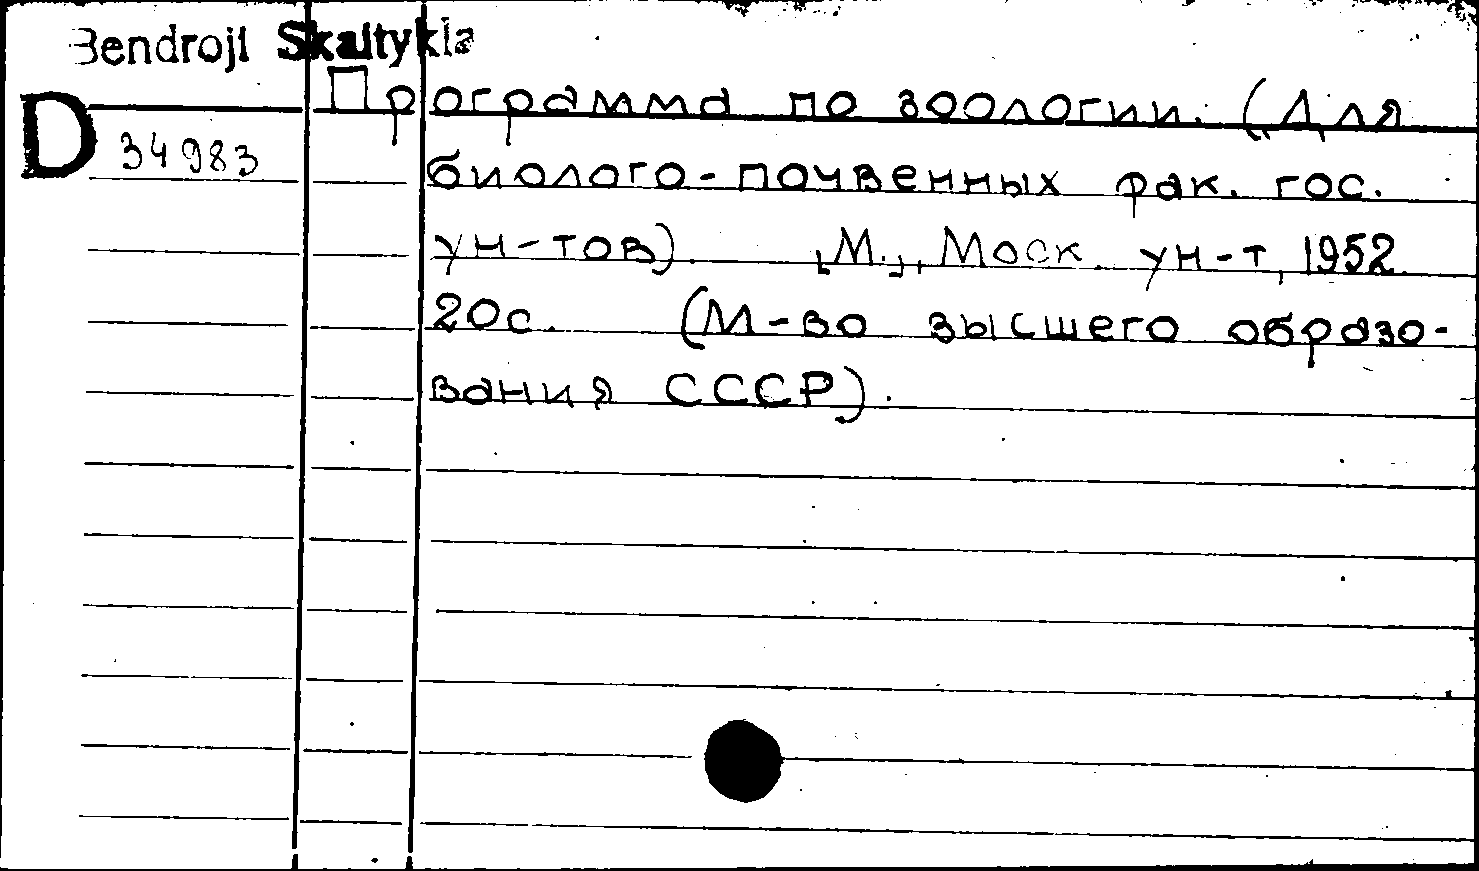 Bendroji Skaitykla
Программа по зоологии. (Для
D 34983
биолого-почвенных фак. гос.
ун-тов). [М.], Моск. ун-т, 1952.
20с. (М-во высшего образо-
вания СССР).